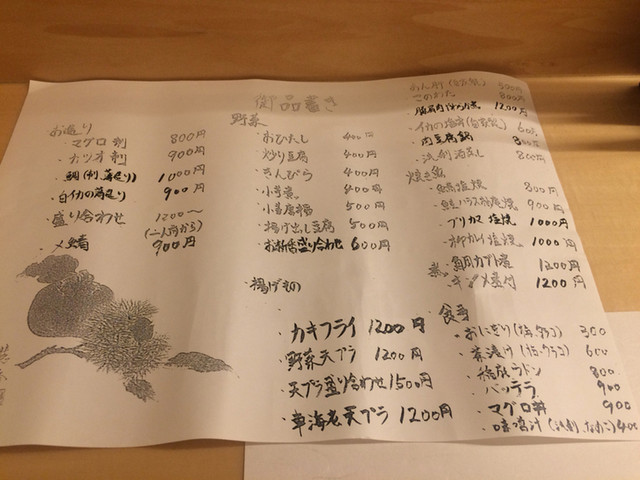 御品書き
お造り
・マグロ刺 800円
・カツオ刺 900円
・鯛(刺、薄造り) 1000円
・白イカの薄造り 900円
盛り合わせ 1200〜
(二人前から)
・〆鯖 900円
野菜
・おひたし 400円
・炒り豆腐 400円
・きんぴら 400円
・小芋煮 400円
・小芋唐揚 500円
・揚げ出し豆腐 500円
・お新香盛り合わせ 600円
・揚げもの
・カキフライ 1200円
・野菜天プラ 1200円
・天プラ盛り合わせ 1500円
・車海老天プラ 1200円
あん肝 900円
800円
1200円
・イカの塩辛(自家製) 600
・肉豆腐鍋 800円
・浅利酒蒸し 800円
焼き魚
塩焼 800円
900円
・ブリカマ塩焼 1000円
・柳カレイ塩焼 1000円
煮・鯛カブト煮 1200円
・キンメ煮付 1200円
・食事
・おにぎり(梅、タラコ) 300
・茶漬け(梅、タラコ) 600
・稲庭ウドン 800
・バッテラ 900
・マグロ丼 900
・味噌汁(浅利、なめこ) 400